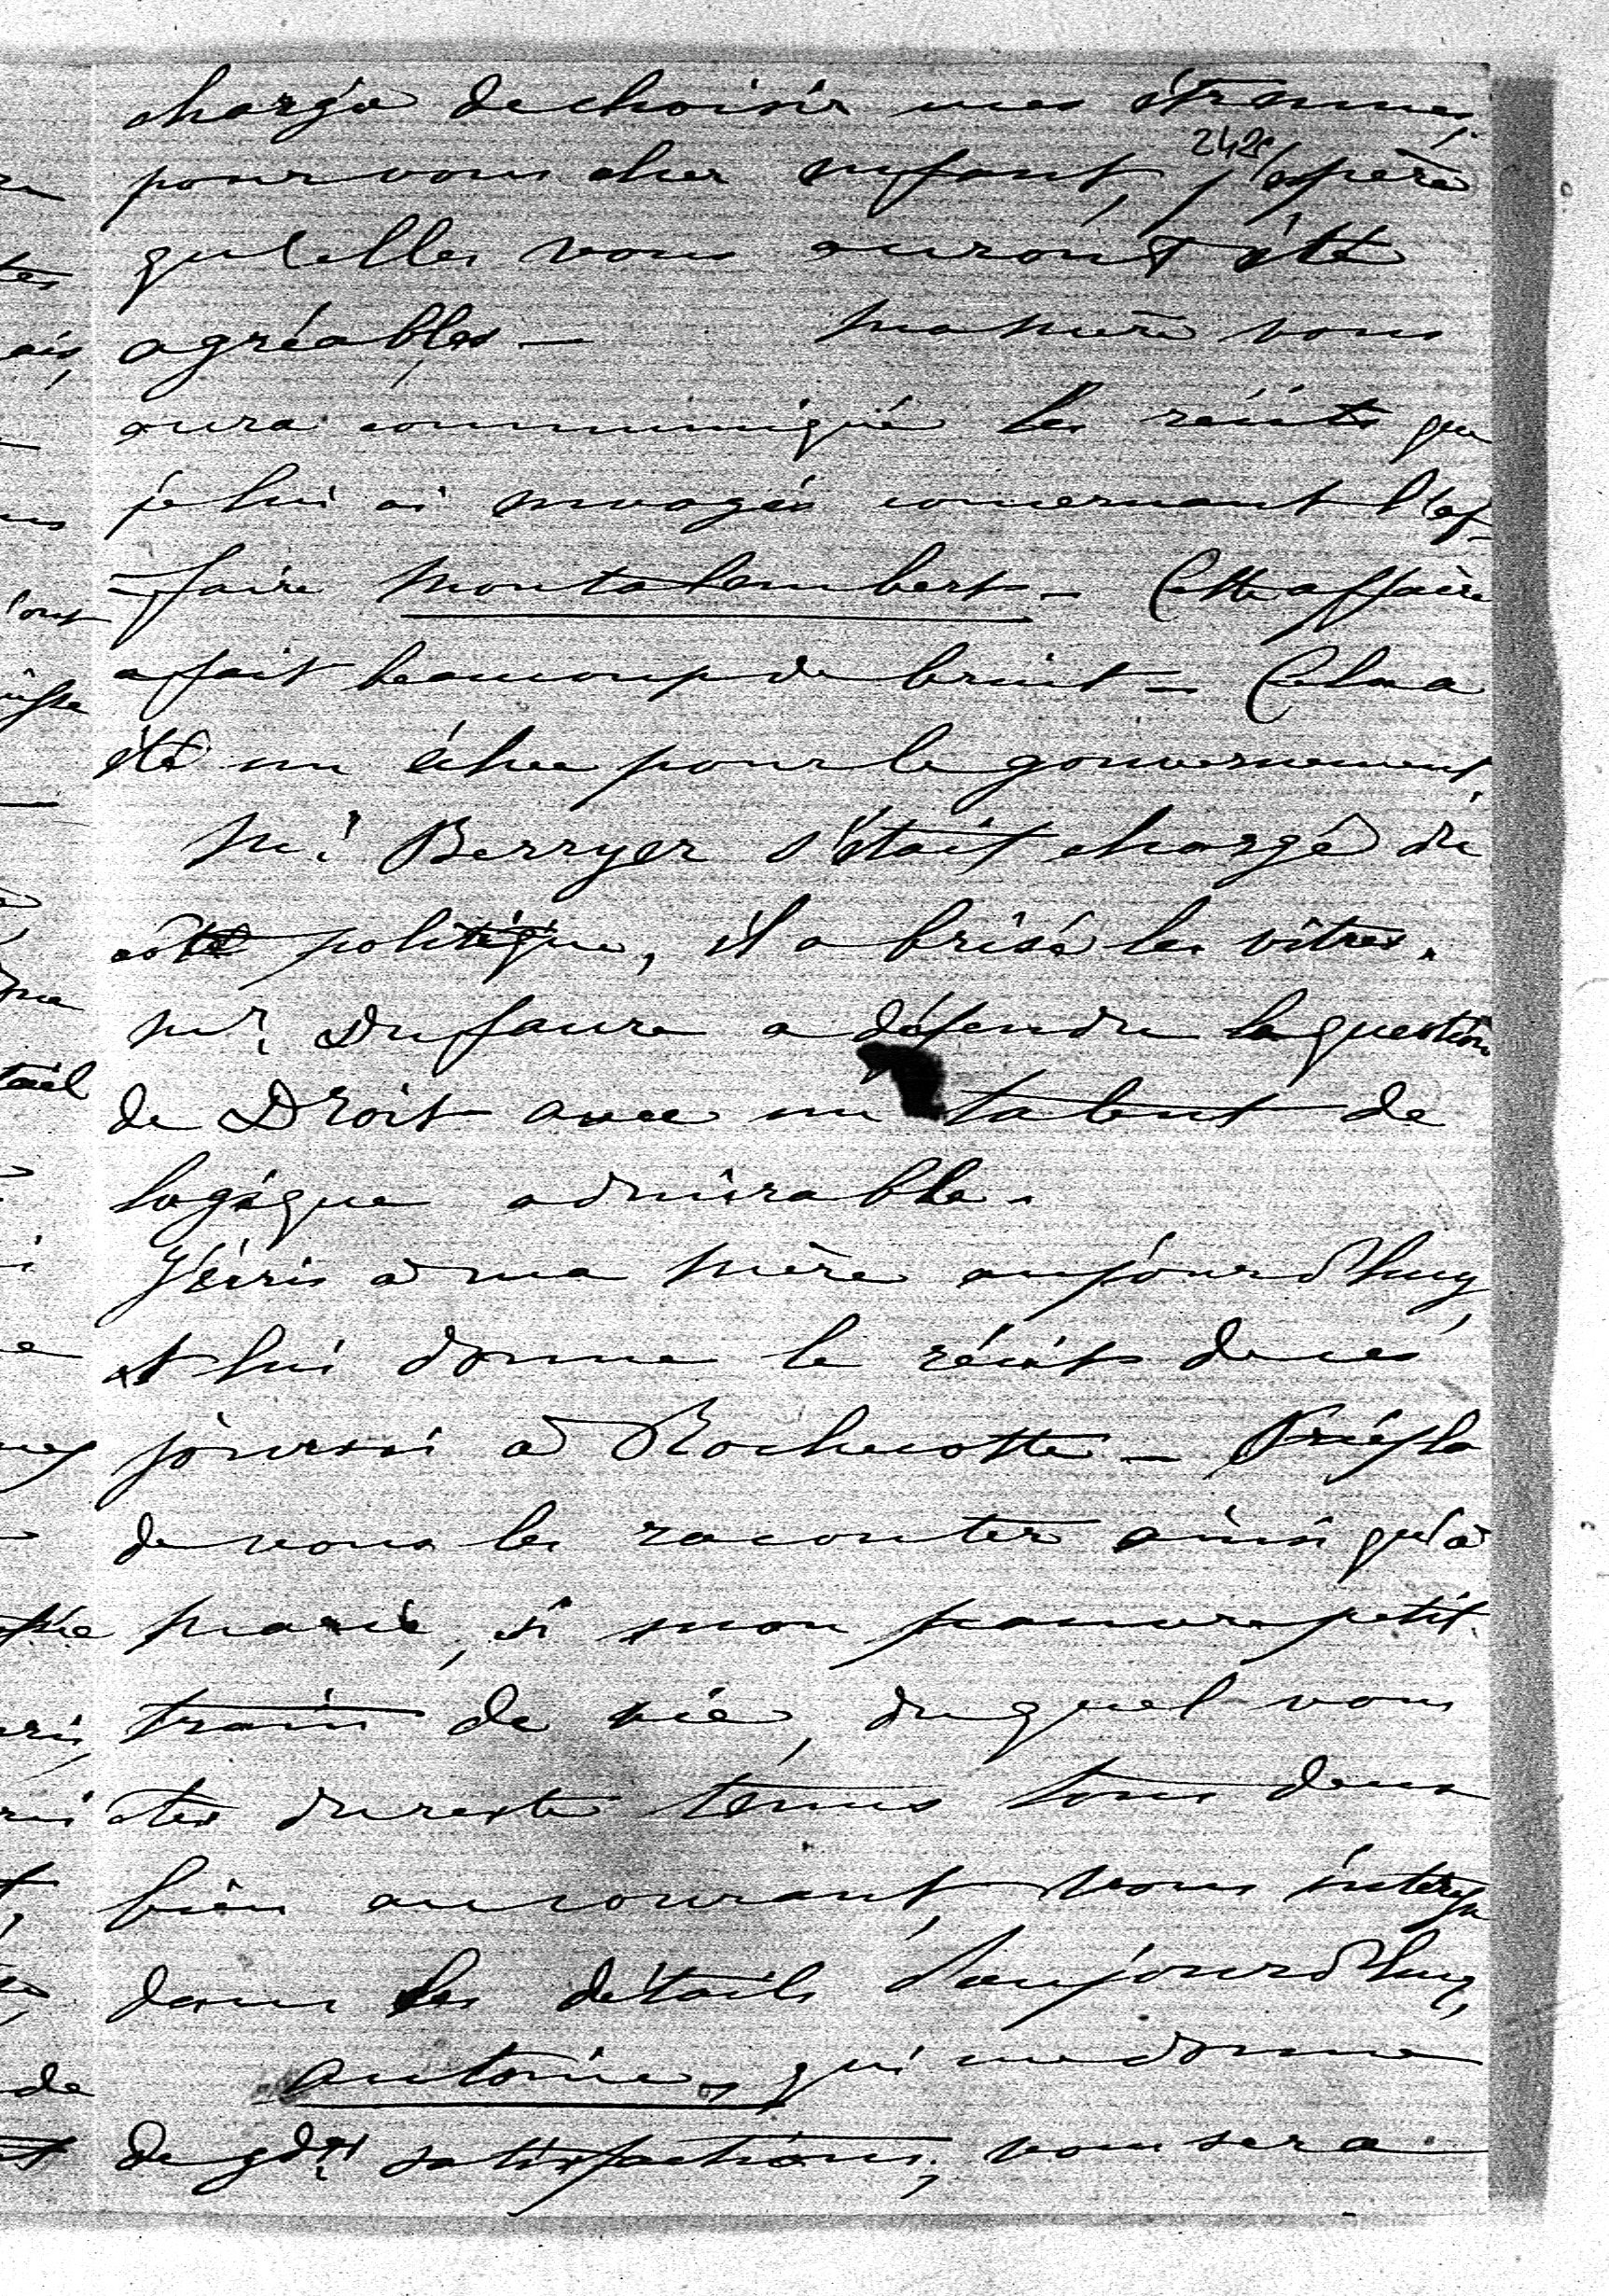 chargée de choisir mes étrennes
242
pour vous cher enfant, j'espère
qu'elles vous auront été
agréables — Ma mère vous
aura communiqué les récits que
je lui ai envoyés concernant l'af-
=faire Montalembert — Cette affaire
a fait beaucoup de bruit — Cela a
été un échec pour le gouvernement.
Mr Berryer s'était chargé du
côté politique, il a brisé les vitres.
Mr Dufaure a défendu la question
de Droit avec un talent de
logique admirable.
J'écris à ma mère aujourd'huy,
et lui donne le récit de ces
jours ci à Rochecotte — Priez la
de vous les raconter ainsi qu'à
Marie, si mon pauvre petit
train de vie, duquel vous
êtes du reste tenus tous deux
bien au courant, vous intéresse
dans les détails d'aujourd'huy,
Antoine, qui me donne
de gdes satisfactions, vous sera